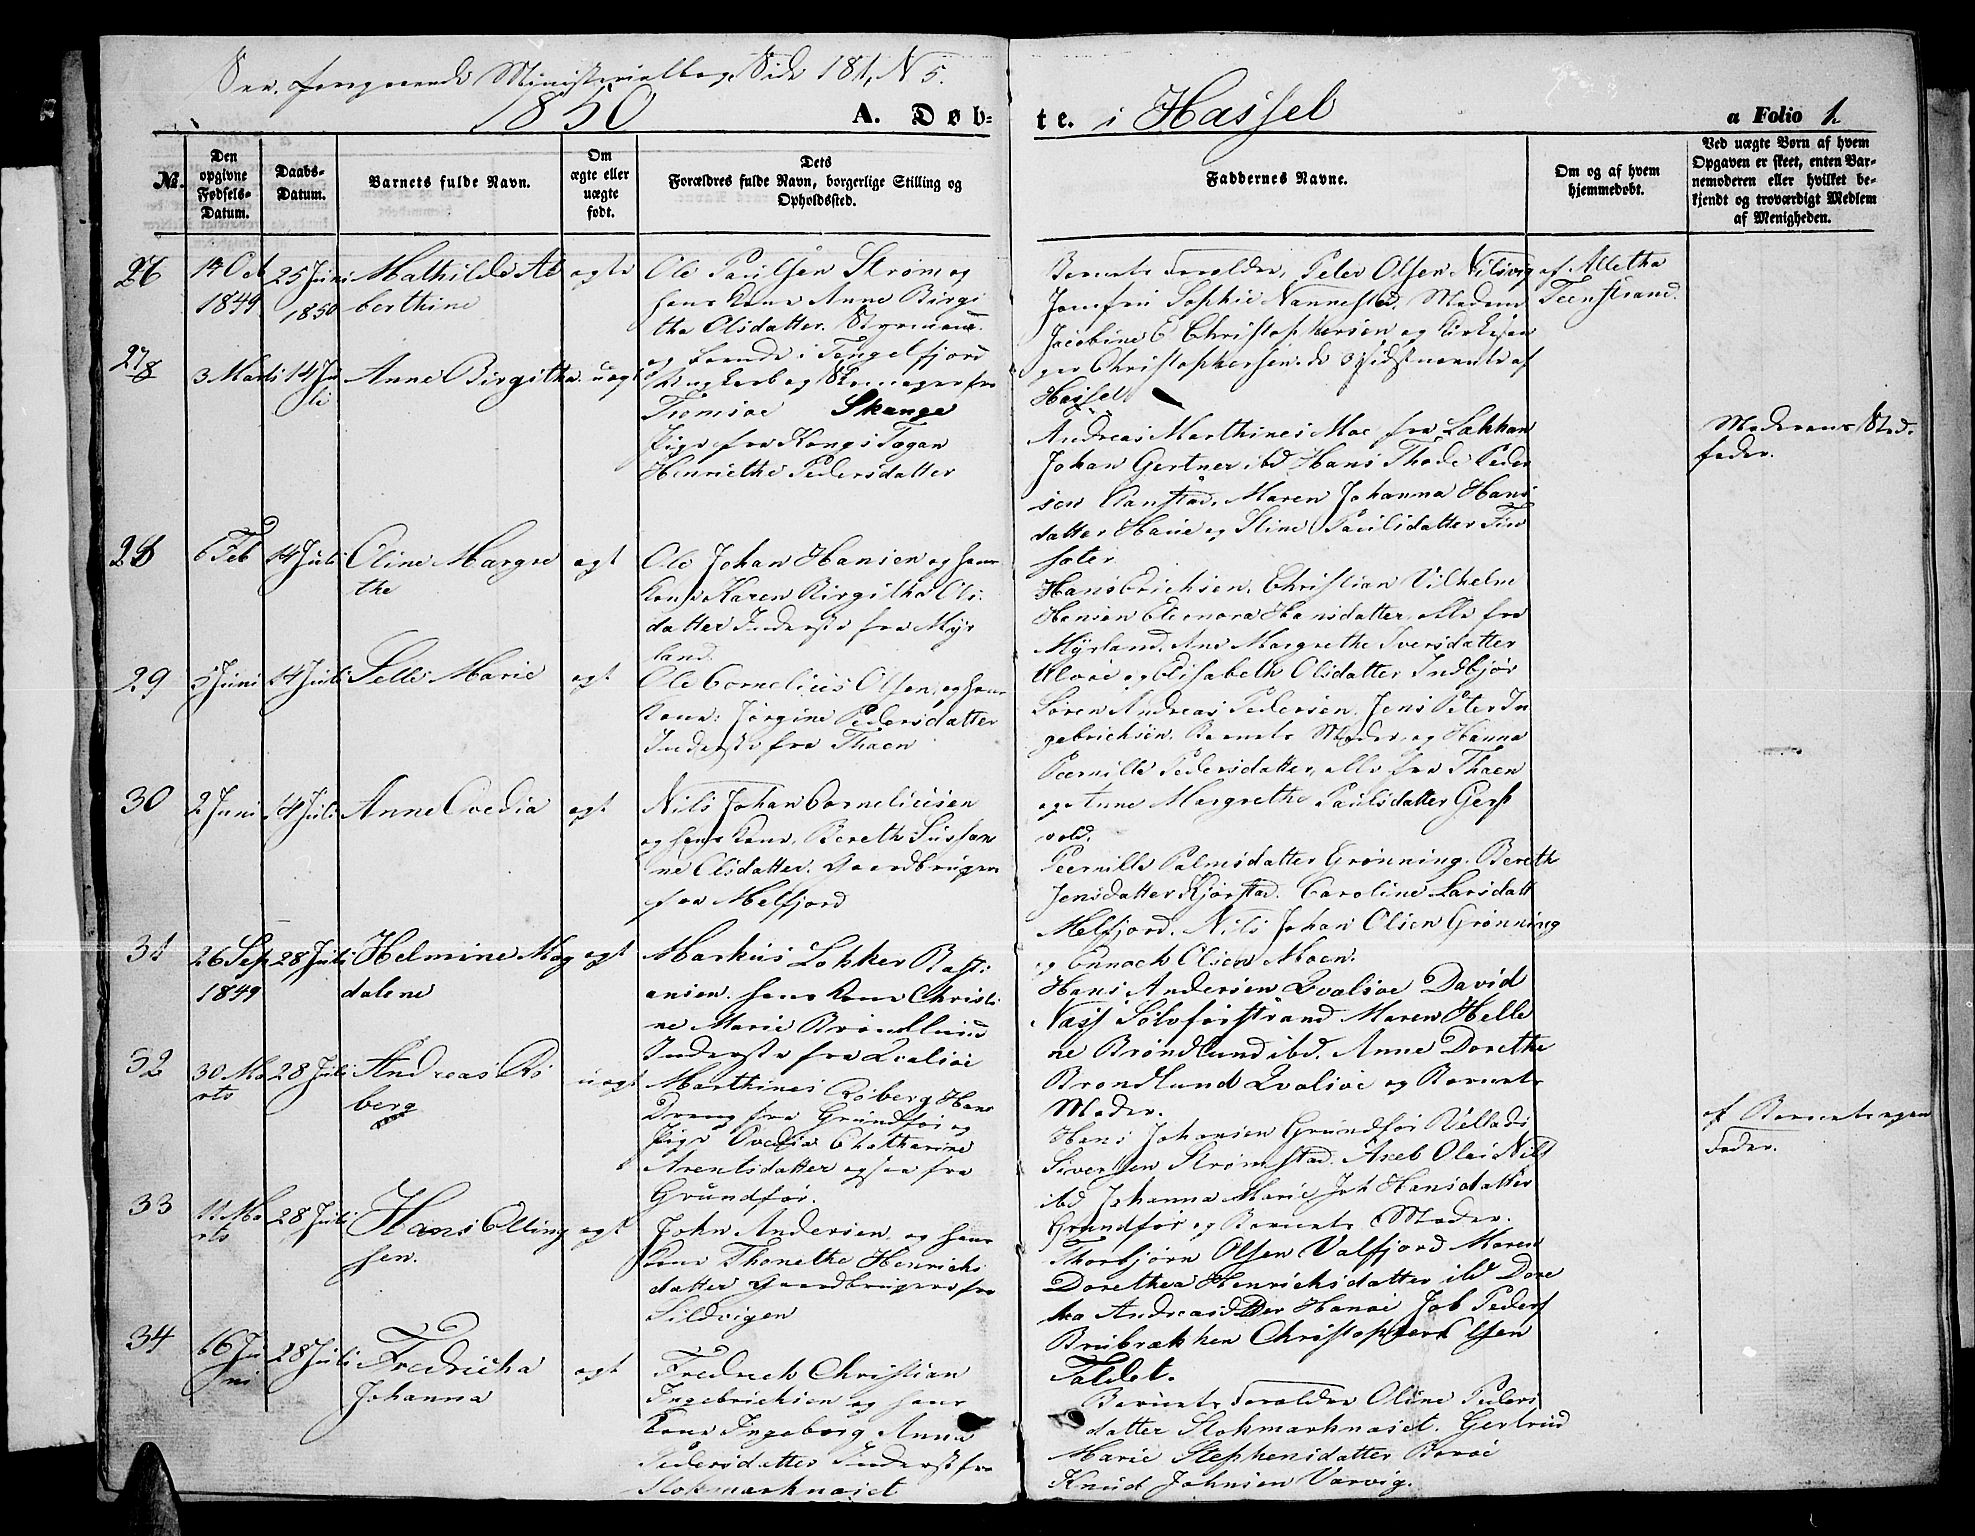 See foregaaende Ministerialbog Side 181, N 5.
1850 A. Døb= te. i Hassel a Folio 1.
№.
Den opgivne Fødsels-Datum.
Daabs-Datum.
Barnets fulde Navn.
Om ægte eller uægte født.
Dets Forældres fulde Navn, borgerlige Stilling og Opholdssted.
Faddernes Navne.
Om og af hvem hjemmedøbt.
Ved uægte Børn af hvem Opgaven er skeet, enten Barnemoderen eller hvilket bekjendt og troværdigt Medlem af Menigheden.
26
14 Oct
1849
25 Juni
1850
Mathilde Al
berthine
ægte
Ole Paulsen Strøm og
hans Kone Anne Birgi
tha Olsdatter. Styrmand
og boende i Tengelfjord
Barnets Forældre, Peter Olsen Nilsvig
Jomfru Sophie Nannestad. Madam
Jacobine E Christophersen og Kirkesan
ger Christophersen. de 3 sidstnævnte af
Hassel
af Alletha
Teenstrand.
27
3 Marts
14 Ju
li
Anne Birgitha
uægt
Ungkarl og Skomager fra
Tromsøe Skange
Pige fra Kongs Tagan
Henriethe Pedersdatter
Andreas Marthines Moe fra Lakhan
Johan Gertner ibd Hans Thode Peder
sen Kanstad. Maren Johanna Hans
datter Haue og Stine Paulsdatter Fin
sæter
Moderens Sted-
fader.
28
6 Feb
14 Juli
Oline Margre
the
ægt
Ole Johan Hansen og hans
Kone Karen Birgitha Ols
datter Inderste fra Myr
land.
Hans Erichsen, Christian Vilhelm
Hansen Eleonora Hansdatter, alle fra
Myrland. Ane Margrethe Iversdatter
Uløe og Elisabeth Olsdatter Indbjør
29
5 Juni
14 Juli
Selle Marie
ægt
Ole Cornelius Olsen, og hans
Kone: Jørgine Pedersdatter
Inderste fra Thaen
Søren Andreas Pedersen, Jens Peter In
gebrichsen. Barnets Moder, og Hanna
Pernille Pedersdatter, alle fra Thaen
og Anne Margrethe Paulsdatter Gers
vold.
30
2 Juni
14 Juli
Anne Ovedia
ægt
Nils Johan Corneliusen
og hans Kone, Bereth Sussan
ne Olsdatter. Gaardbruger
fra Melfjord
Pernille Palmesdatter Grønning. Bereth
Jensdatter Kjørstad. Caroline Larsdatt
Melfjord. Nils Johan Olsen Grønning
og Ennoch Olsen Moen.
31
26 Sep
1849
28 Juli
Helmine Mag
dalene
ægt
Markus Lokker Basti
ansen. hans Kone Christi
ne Marie Brøndlund
Inderste fra Qvalsøe
Hans Andersen Qvalsøe David
Nass Sølvførstrand Maren Helle
ne Brøndlund ibd. Anne Dorethe
Brøndlund Qvalsøe og Barnets
Moder.
32
30 Ma
rts
28 Juli
Andreas Rø
berg
uægt
Marthines Røberg Hans
Dreng fra Grundfør og
Pige Ovedia Chatharine
Arentsdatter ogsaa fra
Grundfør.
Hans Johansen Grundfør Vellads
Sivertsen Strømstad. Axel Olai Nils
ibd Johanna Marie Joh Hansdatter
Grundfør og Barnets Moder.
af Barnets egen
Fader.
33
11 Ma
rts
28 Juli
Hans Olling
sen.
ægt
John Andersen, og hans
Kone Thonethe Henrichs
datter Gaardbruger fra
Sildvigen
Thorbjørn Olsen Valfjord Maren
Dorethea Henrichsdatter ibd Dore
tha Andreasdatter Hanøe Job Peders
Brubrækken Christopher Olsen
Faldet.
34
16 Ju
ni
28 Juli
Fredricha
Johanna
ægt
Fredrich Christian
Ingebrichsen og hans
Kone Ingeborg Anna
Pedersdatter Inderste fra
Stokmarknæset
Barnets Forældre Oline Peders
datter Stokmarknæset. Gertrud
Marie Stephensdatter Borøe
Knud Johnsen Varvig.